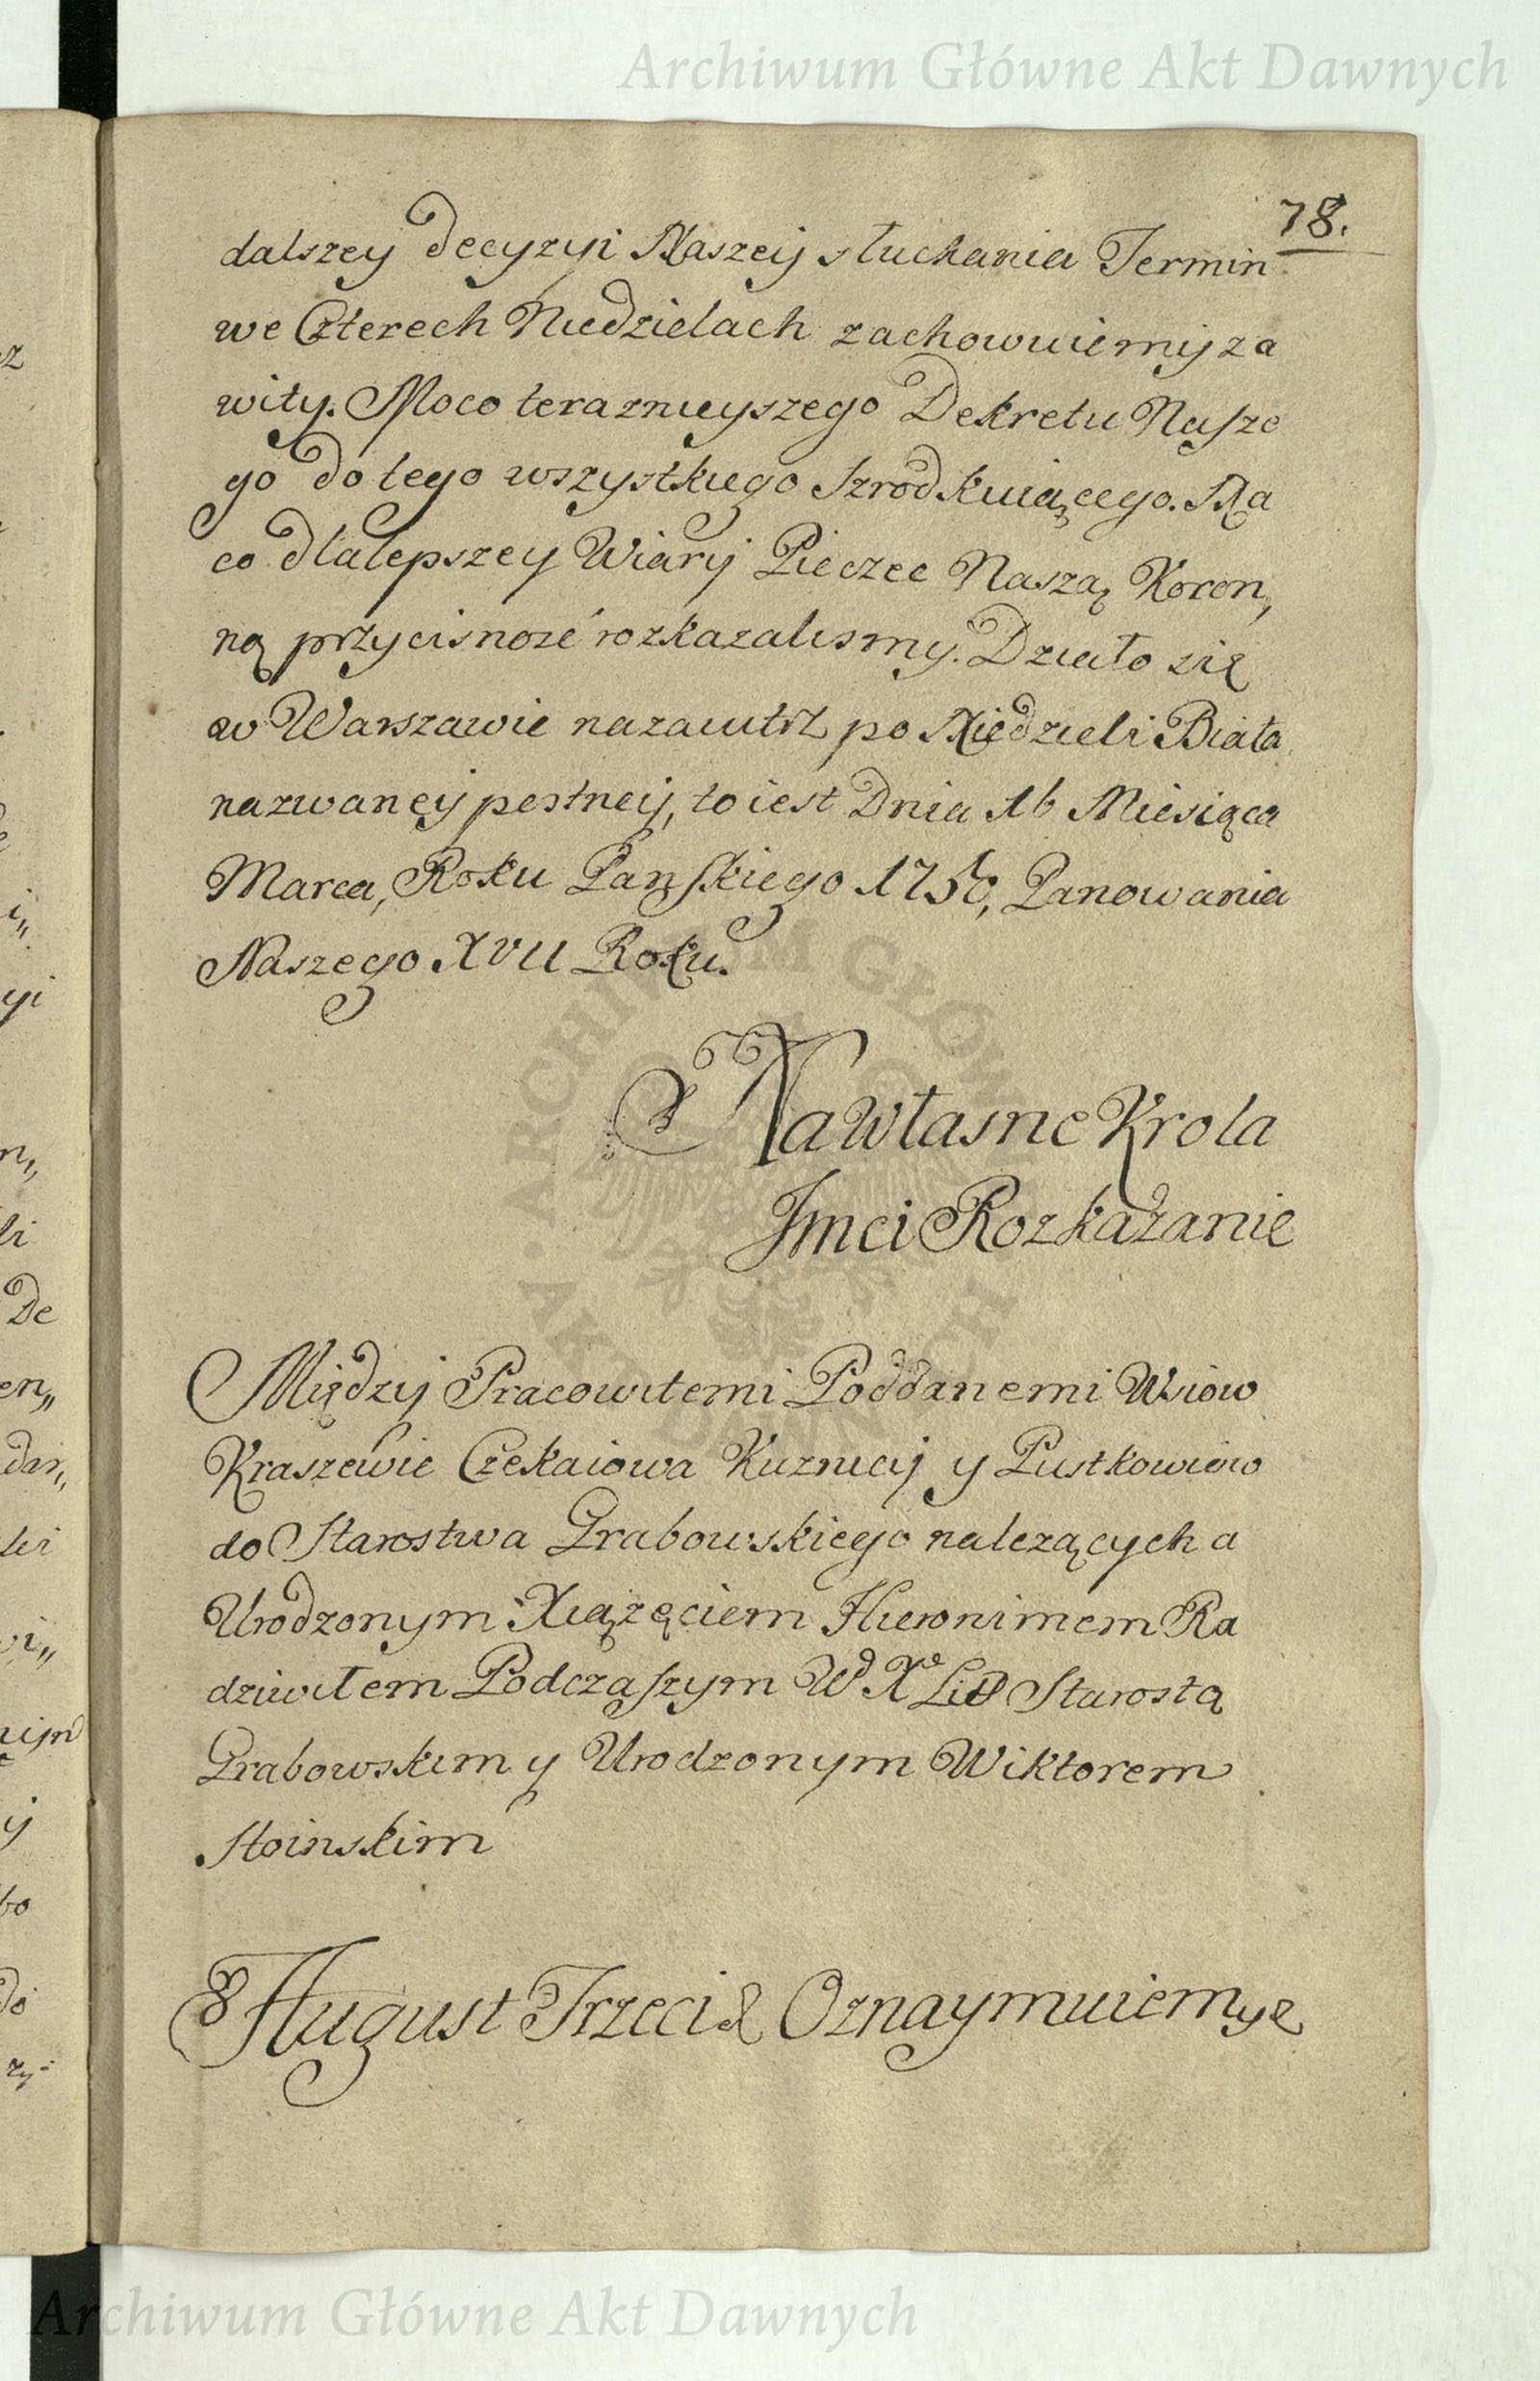 Archiwum Główne Akt Dawnych
78.
dalszey Decyzyi Naszeij słuchania Termin
we Czterech Niedzielach zachowuiemij za
wity. Moco teraznieyszego Dekretu Nasze
go do tego wszystkiego srzodkuiącego. Na
co dla lepszey Wiarij Pieczec Naszą Koron,
ną przycisnoić rozkazalismy. Działo się
w Warszawie nazaiutrz po Niedzieli Biała
nazwaneij postneij, to iest Dnia 16 Miesiąca
Marca, Roku Panskiego 1750, Panowania
Naszego XVII Roku.
Na Własne Krola
Jmci Rozkazanie
Między Pracowitemi Poddanemi Wsiow
Kraszewic Czekaiowa Kuznicij y Pustkowiow
do Starostwa Grabowskiego nalezących a
Urodzonym Xiązęciem Hieronimem Ra
dziwiłem Podczaszym Wo Xo Litt Starostą
Grabowskim y Urodzonym Wiktorem
Stoinskim
August Trzeci & Oznaymuiemy &
Archiwum Główne Akt Dawnych